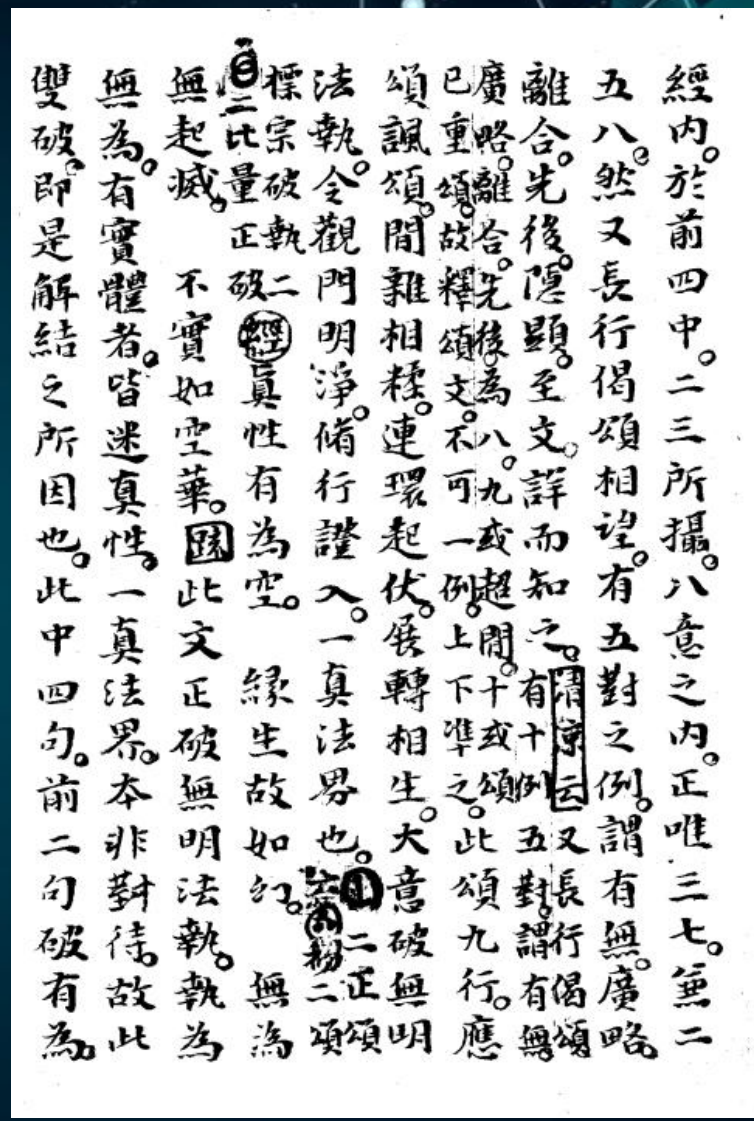 經內。於前四中。二三所攝。八意之內。正唯三七。兼二
五八。然又長行偈頌相望。有五對之例。謂有無。廣略。
離合。先後。隱顯。至文。詳而知之。清涼云又長行偈頌
有十例五對。謂有無
廣略。離合。先後。為八。九或超間。十或頌
已重頌。故釋頌文。不可一例。上下準之。此頌九行。應
頌諷頌。間雜相糅。連環起伏。展轉相生。大意破無明
法執。令觀門明淨。脩行證入。一真法界也。二正頌
二頌
標宗破執二
二比量正破
經真性有為空。 緣生故如幻。 無為
無起滅。 不實如空華。䟽此文正破無明法執。執為
無為。有實體者。皆迷真性。一真法界。本非對待。故此
雙破。即是解結之所因也。此中四句。前二句破有為。